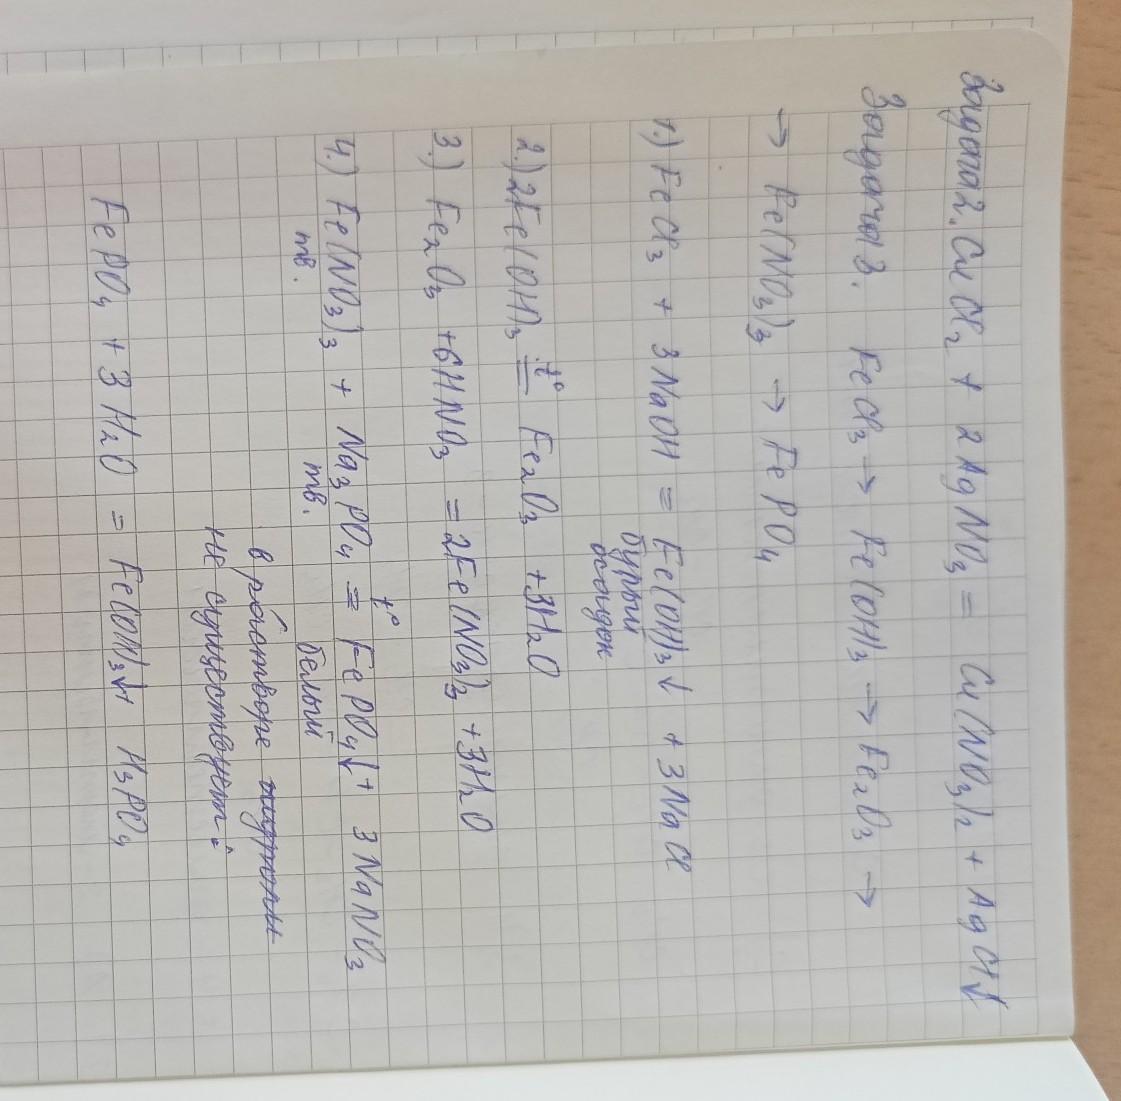 Задача 2. CuCl₂ + 2AgNO₃ = Cu(NO₃)₂ + AgCl↓
Задача 3. FeCl₃ → Fe(OH)₃ → Fe₂O₃ →
→ Fe(NO₃)₃ → FePO₄
1.) FeCl₃ + 3NaOH = Fe(OH)₃↓ + 3NaCl
бурый
осадок
2.) 2Fe(OH)₃ = Fe₂O₃ + 3H₂O
t°
3.) Fe₂O₃ + 6HNO₃ = 2Fe(NO₃)₃ + 3H₂O
4.) Fe(NO₃)₃ + Na₃PO₄ = FePO₄↓ + 3NaNO₃
t°
тв. тв. белый
в растворе
не существует!
FePO₄ + 3H₂O = Fe(OH)₃↓ + H₃PO₄